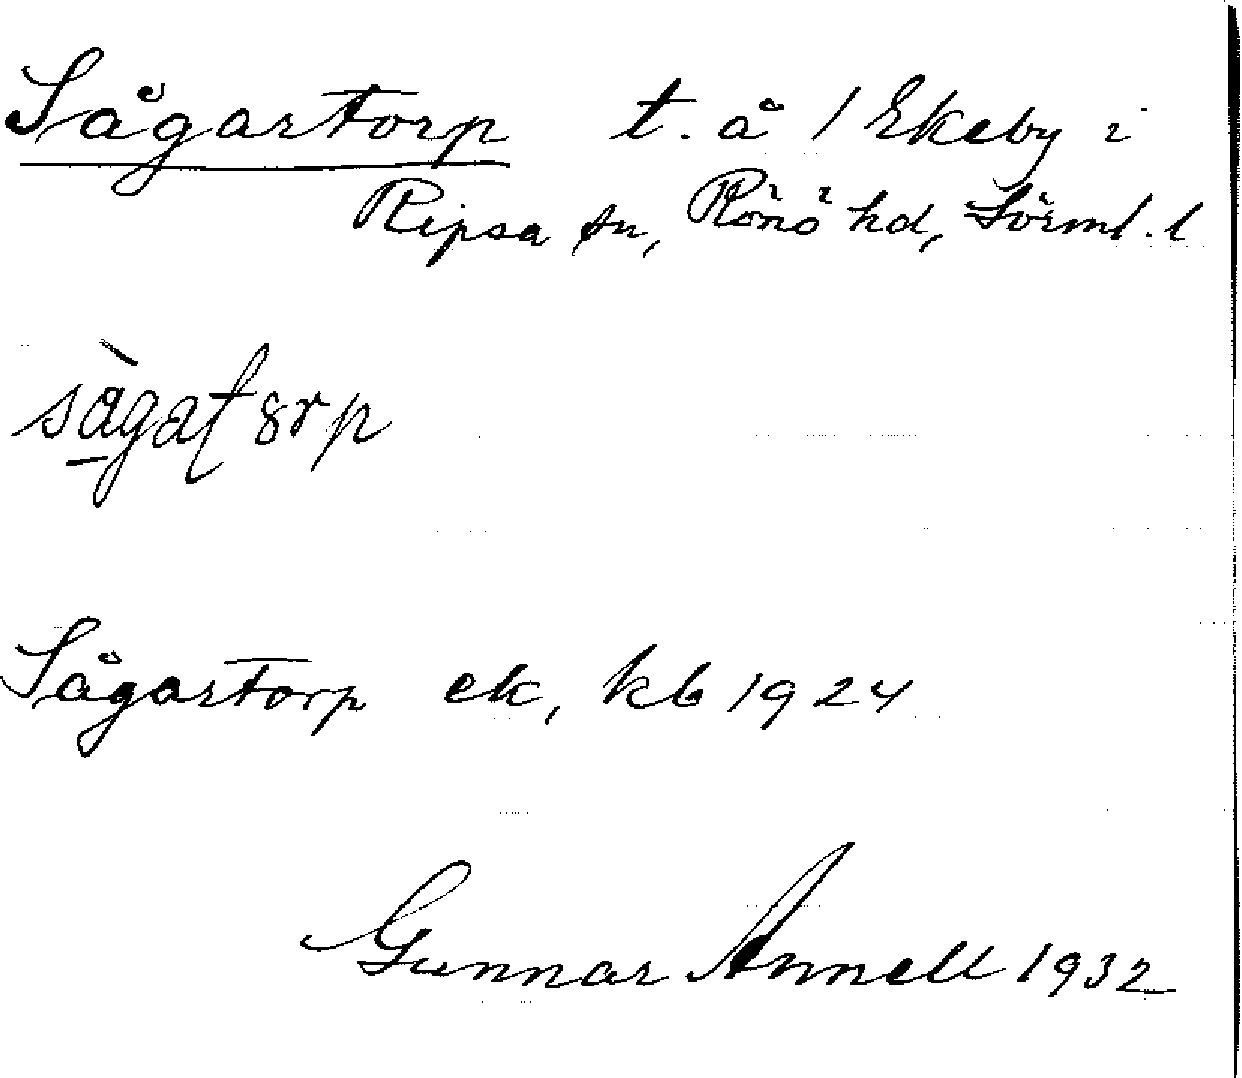 Sågartorp t. å 1 Ekeby i
Ripsa sn, Rönö hd, Sörml. l
Sågartorp ek, kb 1924
Gunnar Annell 1932